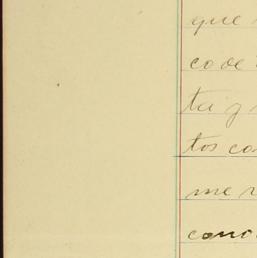 que
co de
ta y
tos co
me
cono